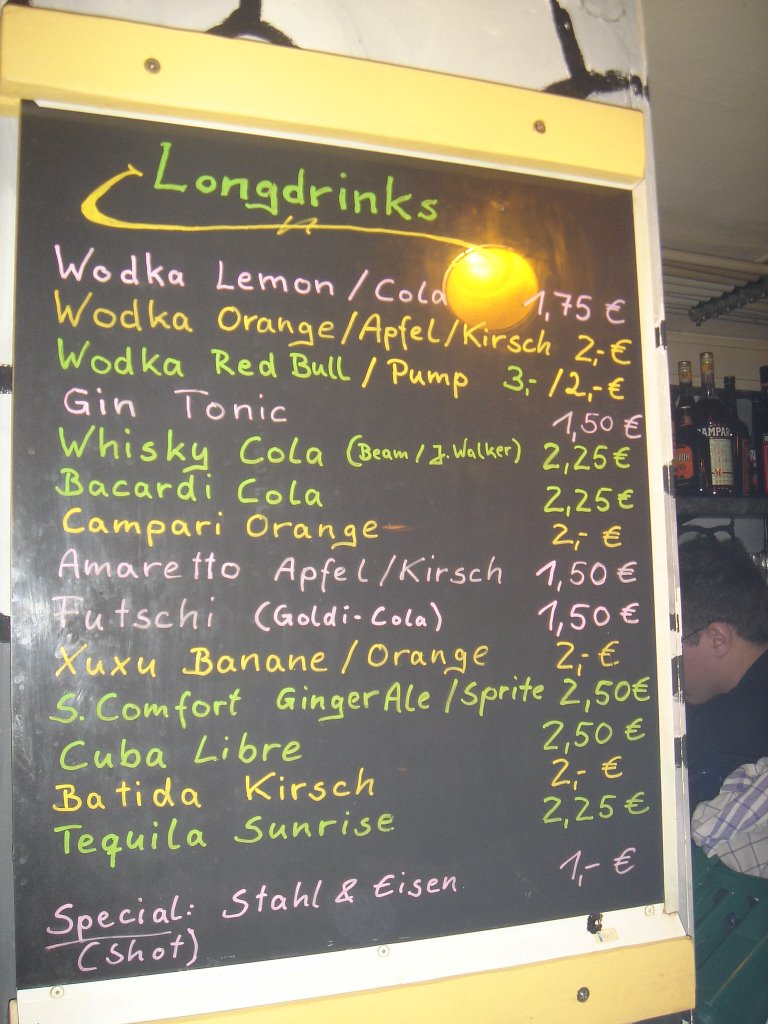 Longdrinks
Wodka Lemon/Cola 1,75 €
Wodka Orange/Apfel/Kirsch 2,- €
Wodka Red Bull / Pump 3,- /2,- €
Gin Tonic 1,50 €
Whisky Cola (Beam / J. Walker) 2,25 €
Bacardi Cola 2,25 €
Campari Orange 2,- €
Amaretto Apfel/Kirsch 1,50 €
Futschi (Goldi-Cola) 1,50 €
Xuxu Banane/Orange 2,- €
S. Comfort Ginger Ale /Sprite 2,50€
Cuba Libre 2,50 €
Batida Kirsch 2,- €
Tequila Sunrise 2,25 €
Special: Stahl & Eisen 1,- €
(Shot)